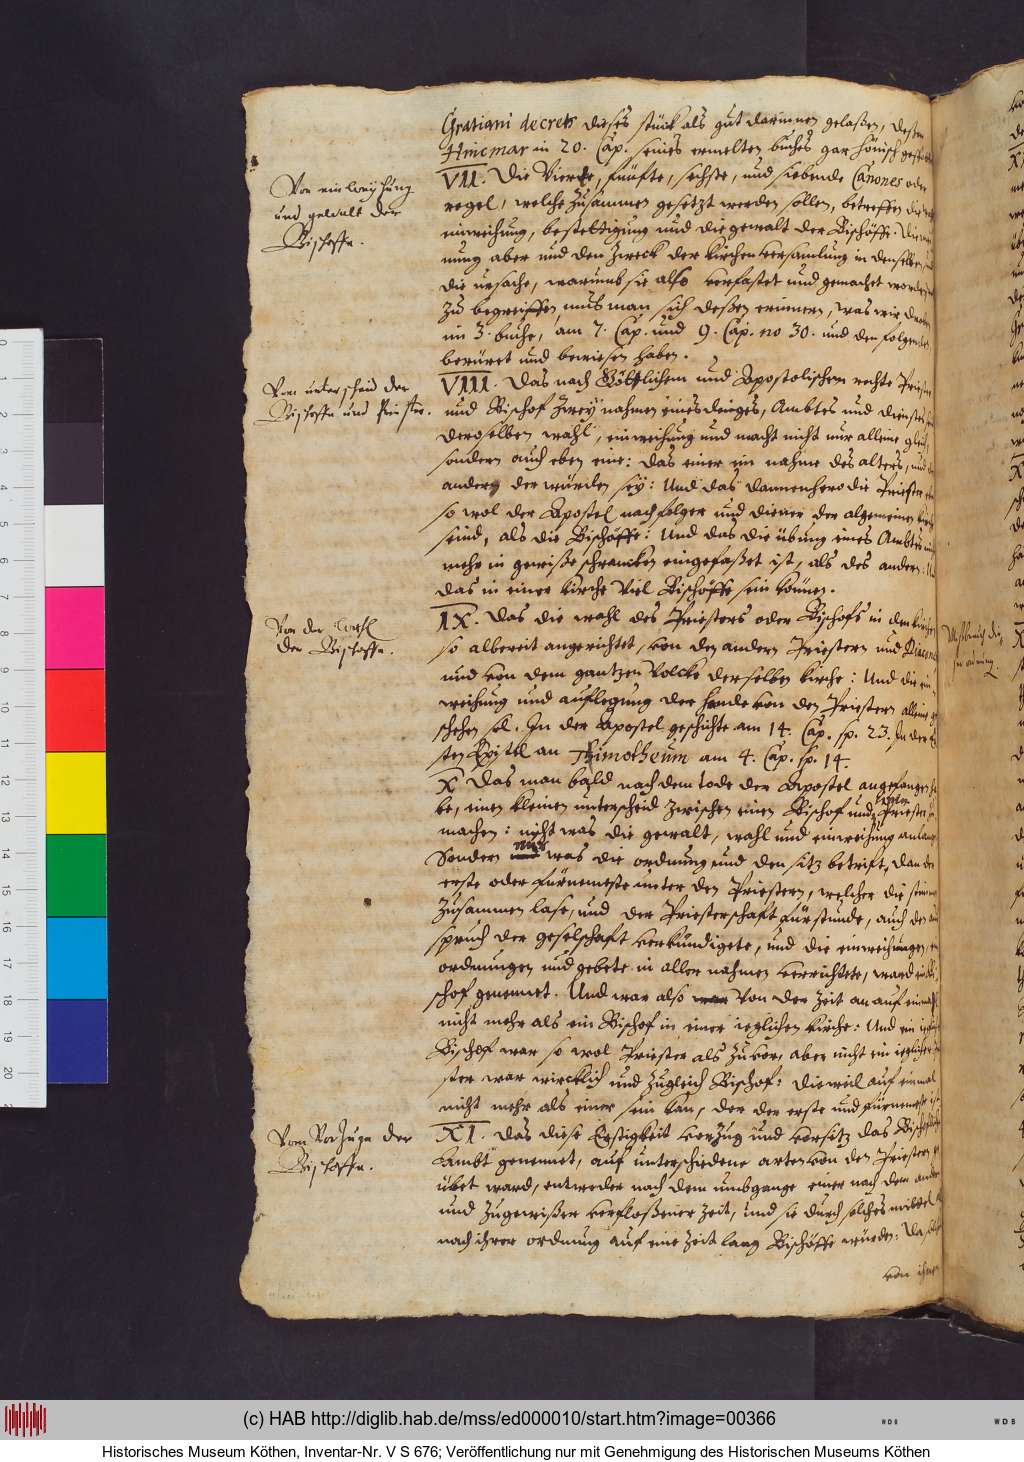 Gratiani decrets dieses stück als gut darinnen gelaßen, deßen
Hincmar in 20. Cap. seines ermelten buches gar hönisch
VII. Die Vierte, fünfte, sechste, und siebende Canones oder
Von einweyhung
und gewalt der
Bischoffe.
regel, welche zusammen gesetzt werden sollen, betreffen die
einweihung, bestettigung und die gewalt der Bischöffe. Die
nung aber und den zweck der kirchen versamlung in denselben, und
die ursache, warumb sie also verfastet und gemachet worden
zu begreiffen, mus man sich deßen erinnern, was wir droben
im 3. buche, am 7. Cap. und 9. Cap. no 30. und den folgenden
berüret und bewiesen haben.
Vom unterscheid der
Bischoffe und Priester.
VIII. Das nach Göttlichem und Apostolischem rechte Priester
und Bischof zwey nahmen eines dinges, Ambtes und dienstes
deroselben wahl, einweihung und macht nicht nur alleine gleich,
sondern auch eben eine: das einer ein nahme des alters, und
ander der würden sey: Und das dannenhero die Priester
so wol der Apostel nachfolger und diener der algemeinen
seind, als die Bischöffe: Und das die übung eines Ambtes
mehr in gewiße schrancken eingefaßet ist, als des andern:
das in einer kirche viel Bischöffe sein können.
Von der Wahl
der Bischoffe.
IX. Das die wahl des Priesters oder Bischofs in den kirchen
so albereit angerichtet, von den andern Priestern und Diaconen
und von dem gantzen Volcke derselben kirche: Und die ein
weihung und auflegung der hande von den Priestern alleine
schehen sol. In der Apostel geschichte am 14. Cap. sp. 23. In der
sten Epistel an Timotheum am 4. Cap. sp. 14.
X. Das man bald nach dem tode der Apostel angefangen
be, einen kleinen unterscheid zwischen einen Bischof und einen Priester zu
machen: nicht was die gewalt, wahl und einweihung anlangt
Sondern nur was die ordnung und den sitz betrift, dan der
erste oder fürnemeste unter den Priestern, welcher die stimmen
zusammen lase, und der Priesterschaft fürstunde, auch den aus
spruch der geselschaft verkündigete, und die einweihungen,
ordnungen und gebete in aller nahmen verrichtete, ward ein Bi
schof genennet. Und war also von der zeit an auf einmahl
nicht mehr als ein Bischof in einer ieglichen kirche: Und ein ieglicher
Bischof war so wol Priester als zuvor, aber nicht ein ieglicher
ster war wircklich und zugleich Bischof: dieweil auf einmal
nicht mehr als einer sein kan, der der erste und fürnemeste ist.
Vom Vorzuge der
Bischoffe.
XI. Das diese Erstigkeit vorzug und vorsitz das Bischofliche
Ambt genennet, auf unterschiedene arten von den Priestern
übet ward, entweder nach dem umbgange einer nach dem andern
und zugewißer verfloßener zeit, und sie durch solches mittel
nach ihrer ordnung auf eine zeit lang Bischöffe würden:
von ihnen
(c) HAB http://diglib.hab.de/mss/ed000010/start.htm?image=00366
Historisches Museum Köthen, Inventar-Nr. V S 676; Veröffentlichung nur mit Genehmigung des Historischen Museums Köthen